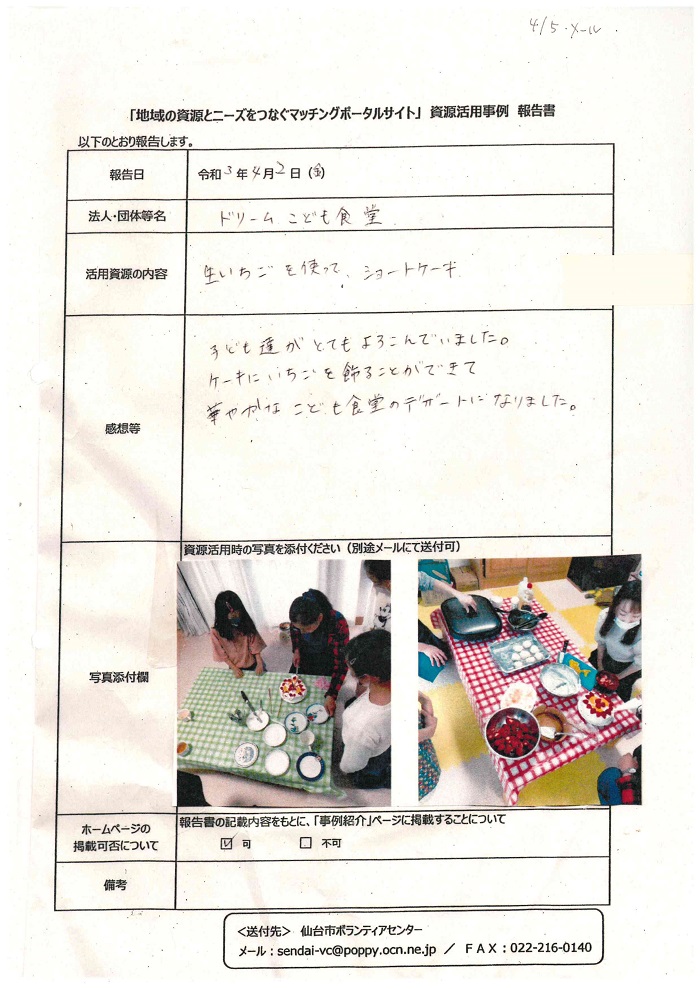 4/5.メール.
「地域の資源とニーズをつなぐマッチングポータルサイト」 資源活用事例 報告書
以下のとおり報告します。
報告日
令和3年4月2日(金)
法人・団体等名
ドリームこども食堂
活用資源の内容
生いちごを使って、ショートケーキ
子ども達がとてもよろこんでいました。
ケーキにいちごを飾ることができて
華やかなこども食堂のデザートになりました。
感想等
資源活用時の写真を添付ください(別途メールにて送付可)
写真添付欄
ホームページの
掲載可否について
報告書の記載内容をもとに、「事例紹介」ページに掲載することについて
☑ 可 □ 不可
備考
<送付先> 仙台市ボランティアセンター
メール:sendai-vc@poppy.ocn.ne.jp / FAX:022-216-0140